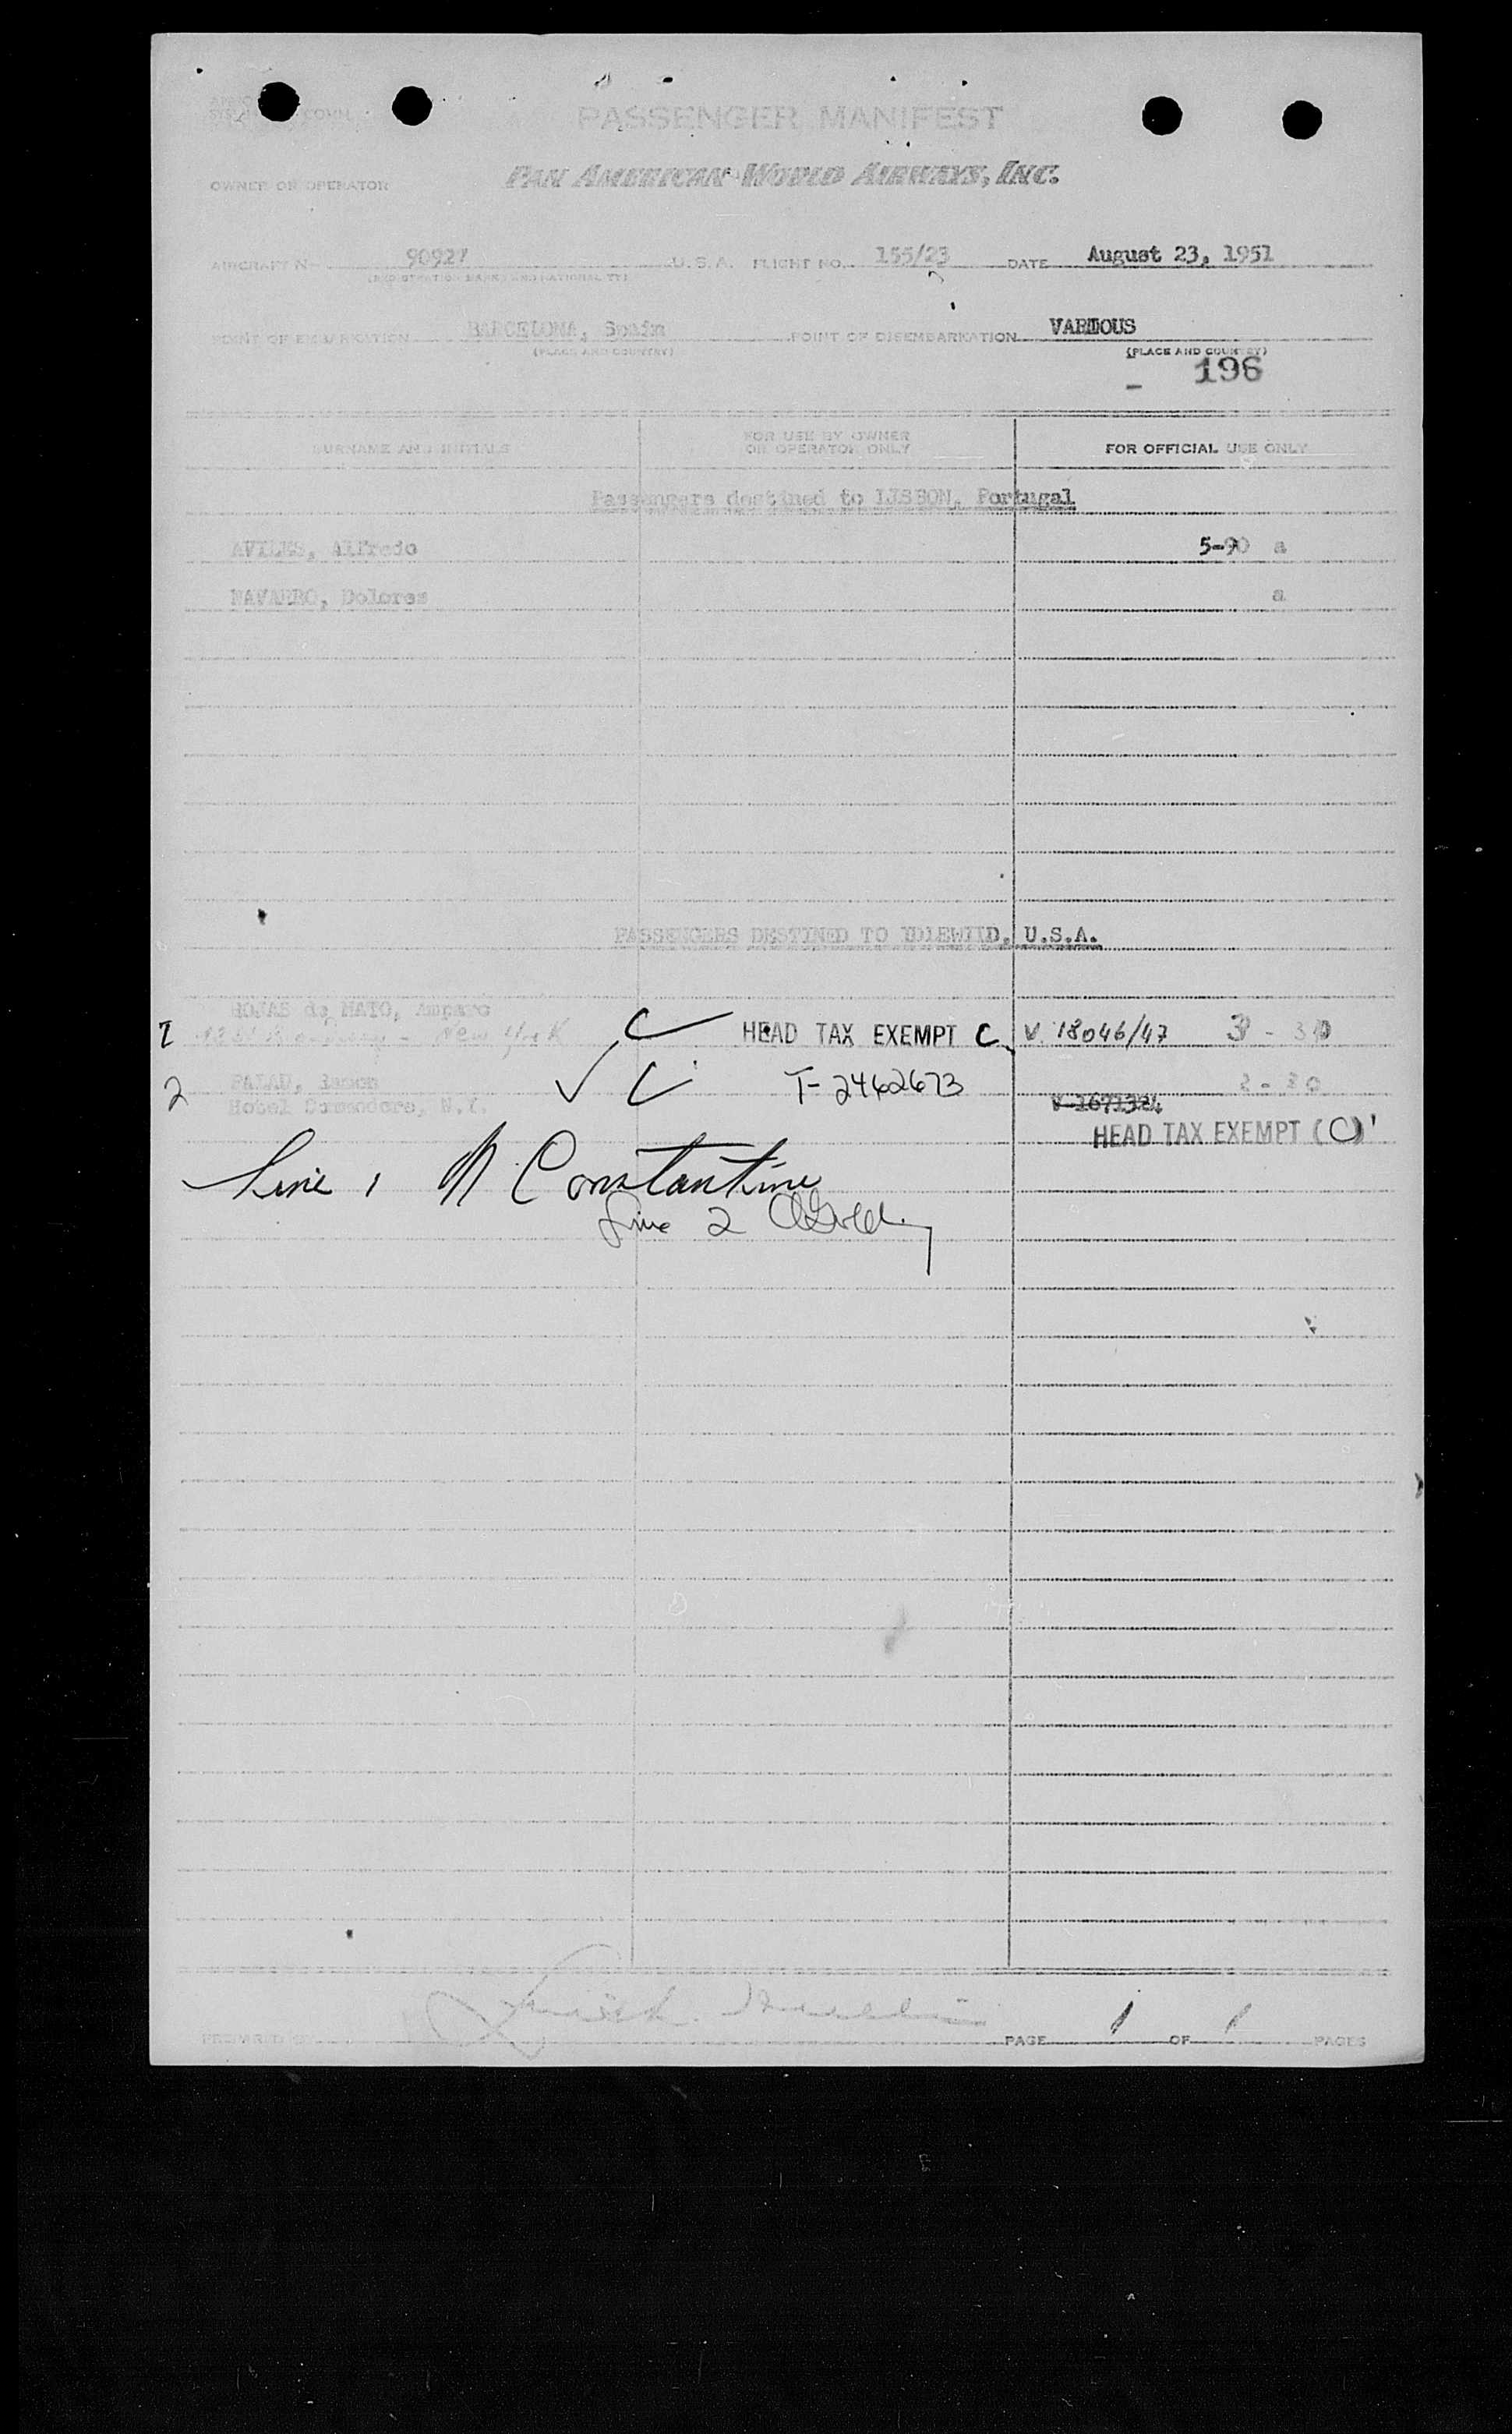 PASSENGER MANIFEST
OWNER OR OPERATOR PAN AMERICAN WORLD AIRWAYS, INC.
AIRCRAFT N- 90927 U.S.A. FLIGHT NO. 155/23 DATE August 23, 1951
(REGISTRATION MARKS AND NATIONALITY)
POINT OF EMBARKATION BARCELONA, Spain POINT OF DISEMBARKATION VARIOUS
(PLACE AND COUNTRY) (PLACE AND COUNTRY)
- 196
SURNAME AND INITIALS FOR USE BY OWNER OR OPERATOR ONLY FOR OFFICIAL USE ONLY
Passengers destined to LISBON, Portugal
AVILES, Alfredo 5-90 a
NAVARRO, Dolores a
PASSENGERS DESTINED TO IDLEWILD, U.S.A.
ROJAS de MATO, Amparo
1 New York C HEAD TAX EXEMPT C V. 18046/47 3 - 30
2 PALAU, Ramon C T-2462673 2-30
Hotel Commodore, N.Y. V-167132
HEAD TAX EXEMPT (C)
Line 1 N Constantine
Line 2
PREPARED BY PAGE 1 OF 1 PAGES